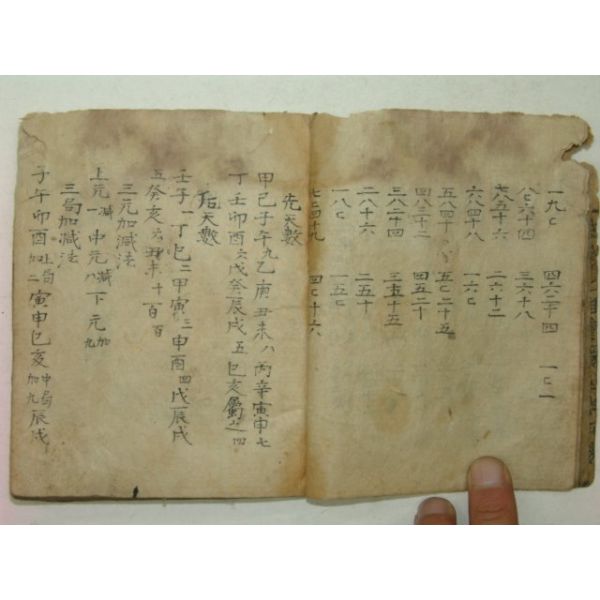 一九ㄷ 四六二十四 一ㄷ一
八ㄷ六十四 三六十八
七八五十六 二六十二
六八四十八 一六ㄷ
五八四十 五ㄷ二十五
四八三十二 四五二十
三八二十四 三五十五
二八十六 二五十
一八ㄷ 一五ㄷ
七ㄷ四十九 四ㄷ十六
先天數
甲己子午九乙庚丑未八丙辛寅申七
丁壬卯酉六戊癸辰戌五巳亥屬之四
后天數
壬子一丁巳二甲寅三申酉四戊辰戌
五癸亥六丑未十百百
三元加減法
上元減一中元減八下元加九
三局加減法
子午卯酉上局加二寅申巳亥中局加九辰戌